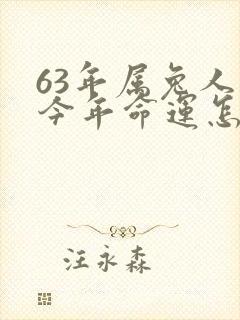 63年属兔人
今年命运怎
汪永森